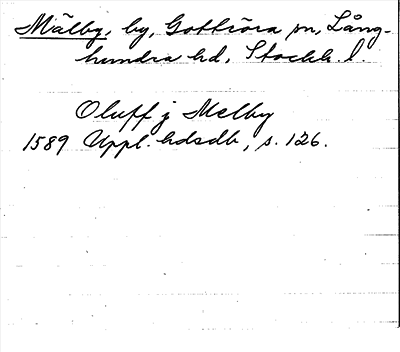 Mälby, by, Gottröra sn, Lång-
hundra hd, Stockh. l.
Oluff j Melby
1589 Uppl. hdsdb, s. 126.